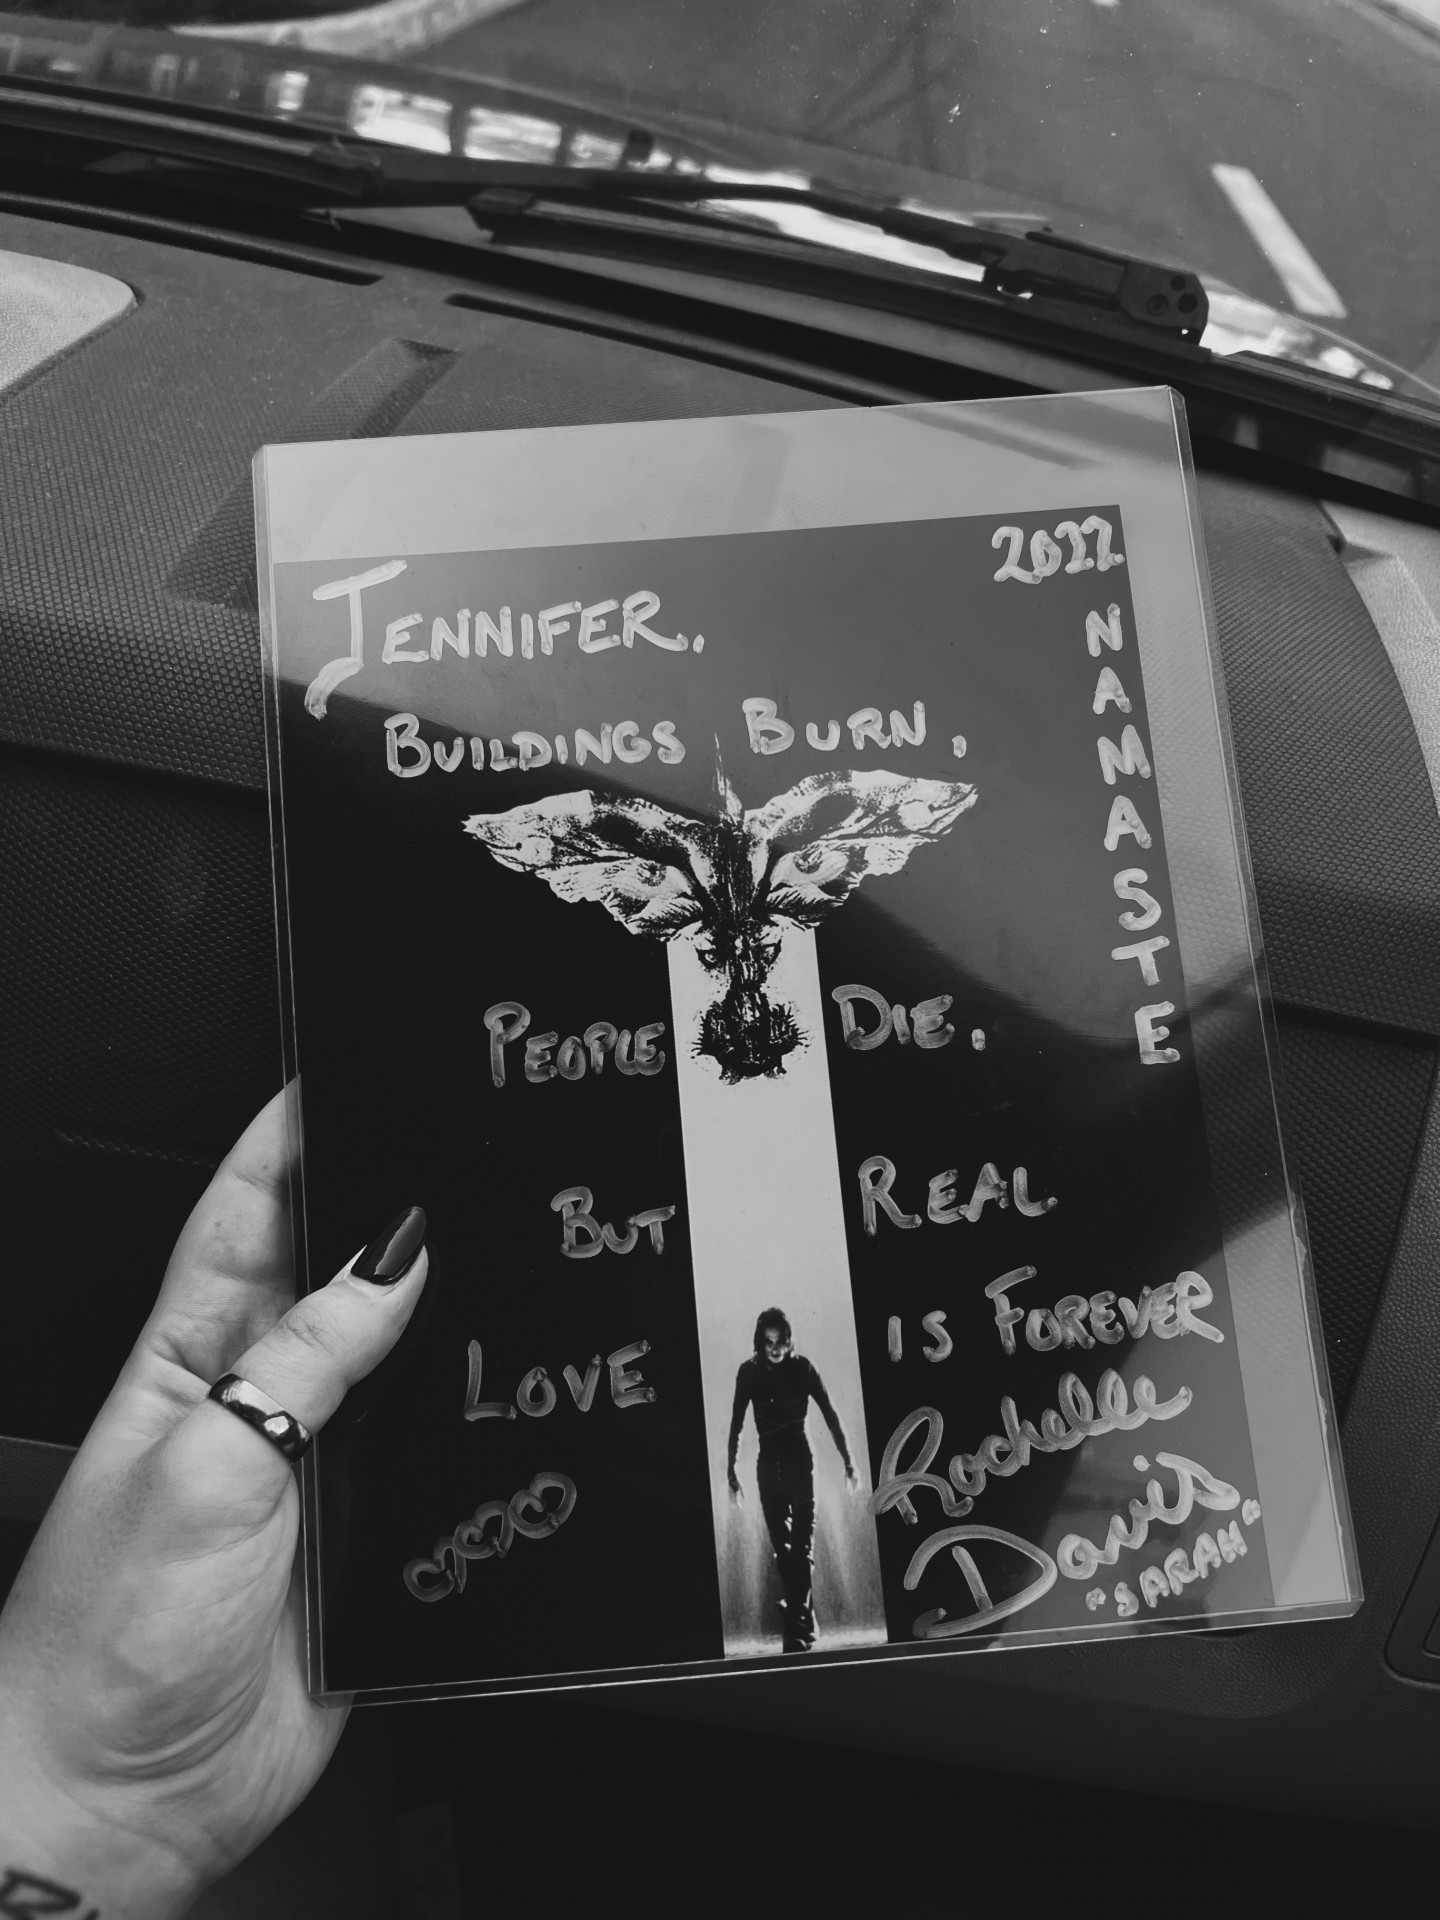 2022
JENNIFER.
BUILDINGS BURN,
PEOPLE DIE.
BUT REAL
LOVE IS FOREVER
Rochelle
Davis
"SARAH"
NAMASTE